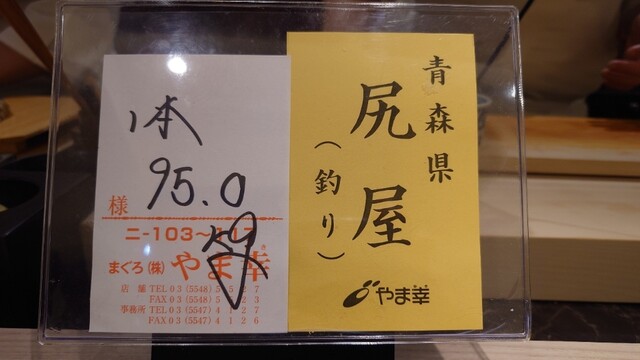 1本
95.0
様
まぐろ(株)やま幸
店舗 TEL 03(5548)5
FAX 03(5548)5
事務所 TEL 03(5547)4126
FAX 03(5547)4126
青森県
尻屋
(釣り)
やま幸